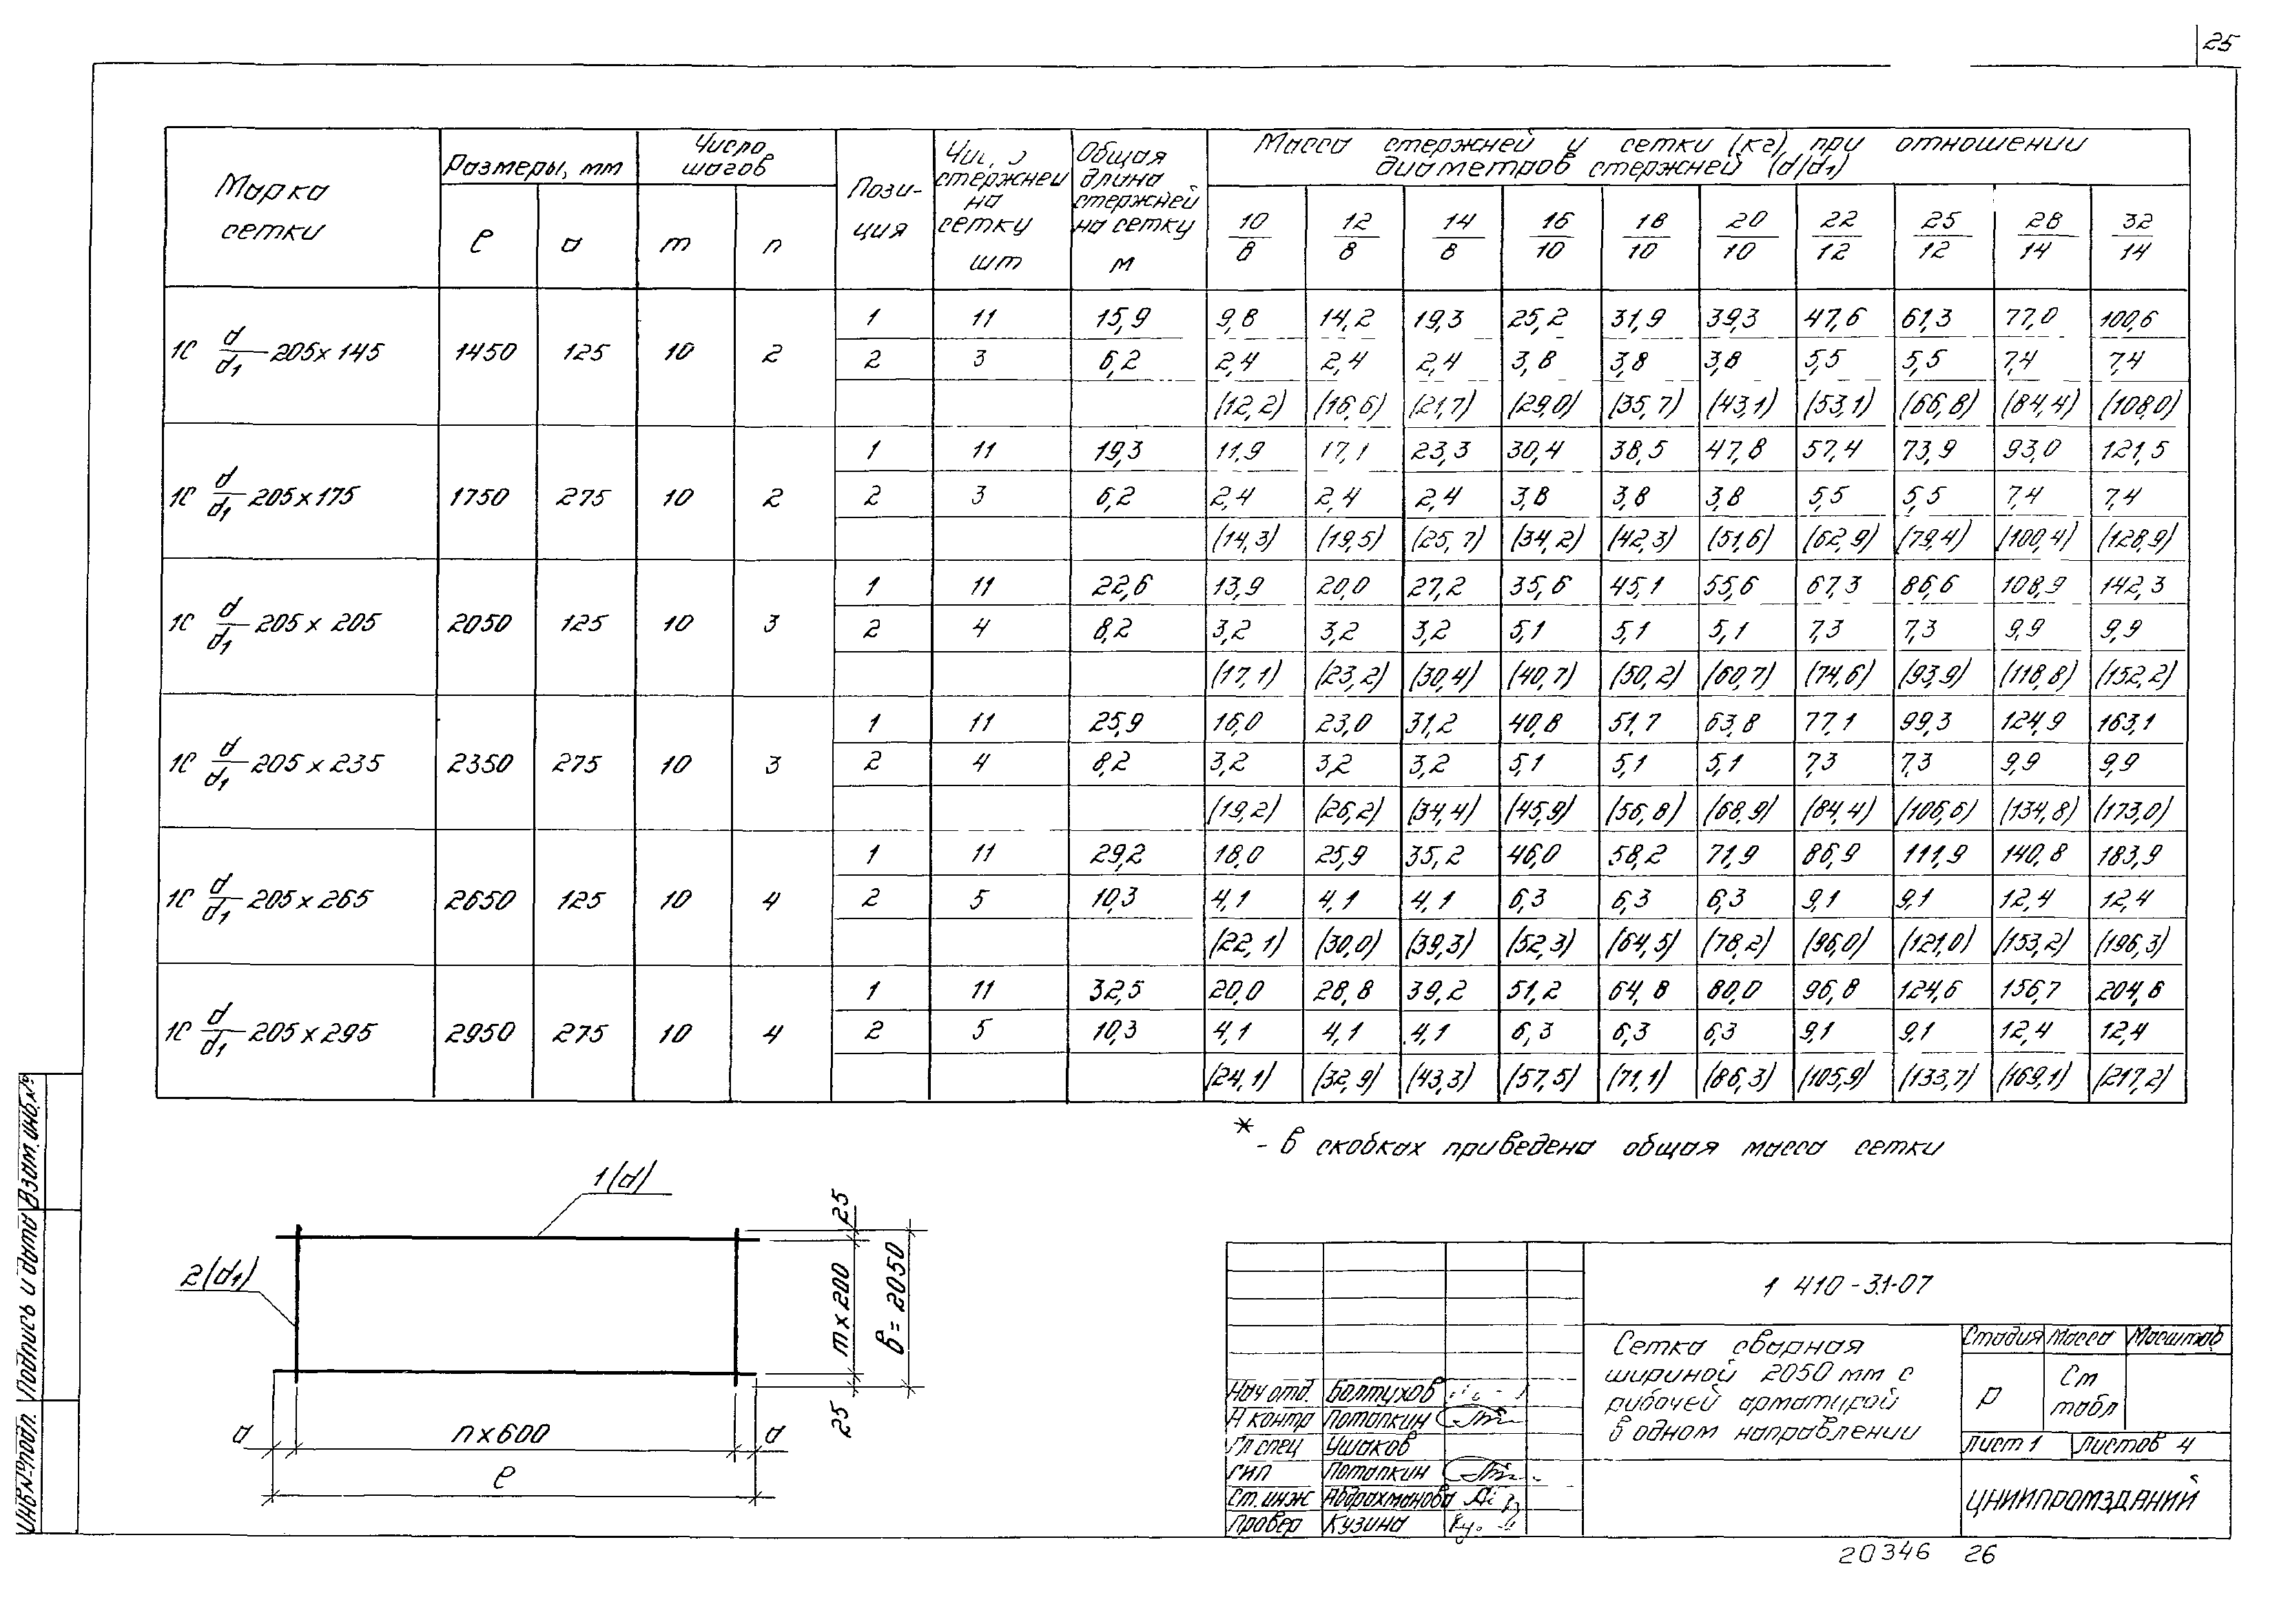 25
Марка сетки | Размеры, мм | Число шагов | Пози-ция | стержней на сетку шт | Общая длина стержней на сетку м | Масса стержней и сетки (кг), при отношении диаметров стержней (d/d1)
ℓ | a | m | n | 10/8 | 12/8 | 14/8 | 16/10 | 18/10 | 20/10 | 22/12 | 25/12 | 28/14 | 32/14
1С d/d1 205×145 | 1450 | 125 | 10 | 2 | 1 | 11 | 15,9 | 9,8 | 14,2 | 19,3 | 25,2 | 31,9 | 39,3 | 47,6 | 61,3 | 77,0 | 100,6
2 | 3 | 6,2 | 2,4 | 2,4 | 2,4 | 3,8 | 3,8 | 3,8 | 5,5 | 5,5 | 7,4 | 7,4
(12,2) | (16,6) | (21,7) | (29,0) | (35,7) | (43,1) | (53,1) | (66,8) | (84,4) | (108,0)
1С d/d1 205×175 | 1750 | 275 | 10 | 2 | 1 | 11 | 19,3 | 11,9 | 17,1 | 23,3 | 30,4 | 38,5 | 47,8 | 57,4 | 73,9 | 93,0 | 121,5
2 | 3 | 6,2 | 2,4 | 2,4 | 2,4 | 3,8 | 3,8 | 3,8 | 5,5 | 5,5 | 7,4 | 7,4
(14,3) | (19,5) | (25,7) | (34,2) | (42,3) | (51,6) | (62,9) | (79,4) | (100,4) | (128,9)
1С d/d1 205×205 | 2050 | 125 | 10 | 3 | 1 | 11 | 22,6 | 13,9 | 20,0 | 27,2 | 35,6 | 45,1 | 55,6 | 67,3 | 86,6 | 108,9 | 142,3
2 | 4 | 8,2 | 3,2 | 3,2 | 3,2 | 5,1 | 5,1 | 5,1 | 7,3 | 7,3 | 9,9 | 9,9
(17,1) | (23,2) | (30,4) | (40,7) | (50,2) | (60,7) | (74,6) | (93,9) | (118,8) | (152,2)
1С d/d1 205×235 | 2350 | 275 | 10 | 3 | 1 | 11 | 25,9 | 16,0 | 23,0 | 31,2 | 40,8 | 51,7 | 63,8 | 77,1 | 99,3 | 124,9 | 163,1
2 | 4 | 8,2 | 3,2 | 3,2 | 3,2 | 5,1 | 5,1 | 5,1 | 7,3 | 7,3 | 9,9 | 9,9
(19,2) | (26,2) | (34,4) | (45,9) | (56,8) | (68,9) | (84,4) | (106,6) | (134,8) | (173,0)
1С d/d1 205×265 | 2650 | 125 | 10 | 4 | 1 | 11 | 29,2 | 18,0 | 25,9 | 35,2 | 46,0 | 58,2 | 71,9 | 86,9 | 111,9 | 140,8 | 183,9
2 | 5 | 10,3 | 4,1 | 4,1 | 4,1 | 6,3 | 6,3 | 6,3 | 9,1 | 9,1 | 12,4 | 12,4
(22,1) | (30,0) | (39,3) | (52,3) | (64,5) | (78,2) | (96,0) | (121,0) | (153,2) | (196,3)
1С d/d1 205×295 | 2950 | 275 | 10 | 4 | 1 | 11 | 32,5 | 20,0 | 28,8 | 39,2 | 51,2 | 64,8 | 80,0 | 96,8 | 124,6 | 156,7 | 204,8
2 | 5 | 10,3 | 4,1 | 4,1 | 4,1 | 6,3 | 6,3 | 6,3 | 9,1 | 9,1 | 12,4 | 12,4
(24,1) | (32,9) | (43,3) | (57,5) | (71,1) | (86,3) | (105,9) | (133,7) | (169,1) | (217,2)
* - в скобках приведена общая масса сетки
1(d)
2(d1)
25
m×200
в=2050
25
a
n×600
a
ℓ
Инв.№ подл. Подпись и дата Взам. инв.№
1 410-3.1-07
Сетка сварная
шириной 2050 мм с
рабочей арматурой
в одном направлении
Стадия Масса Масштаб
Р
См
табл
Лист 1 Листов 4
ЦНИИПРОМЗДАНИЙ
Нач отд. Болтухов
Н контр Потапкин
Гл спец Ушаков
ГИП Потапкин
Ст. инж Абдрахманова
Провер Кузина
20346 26